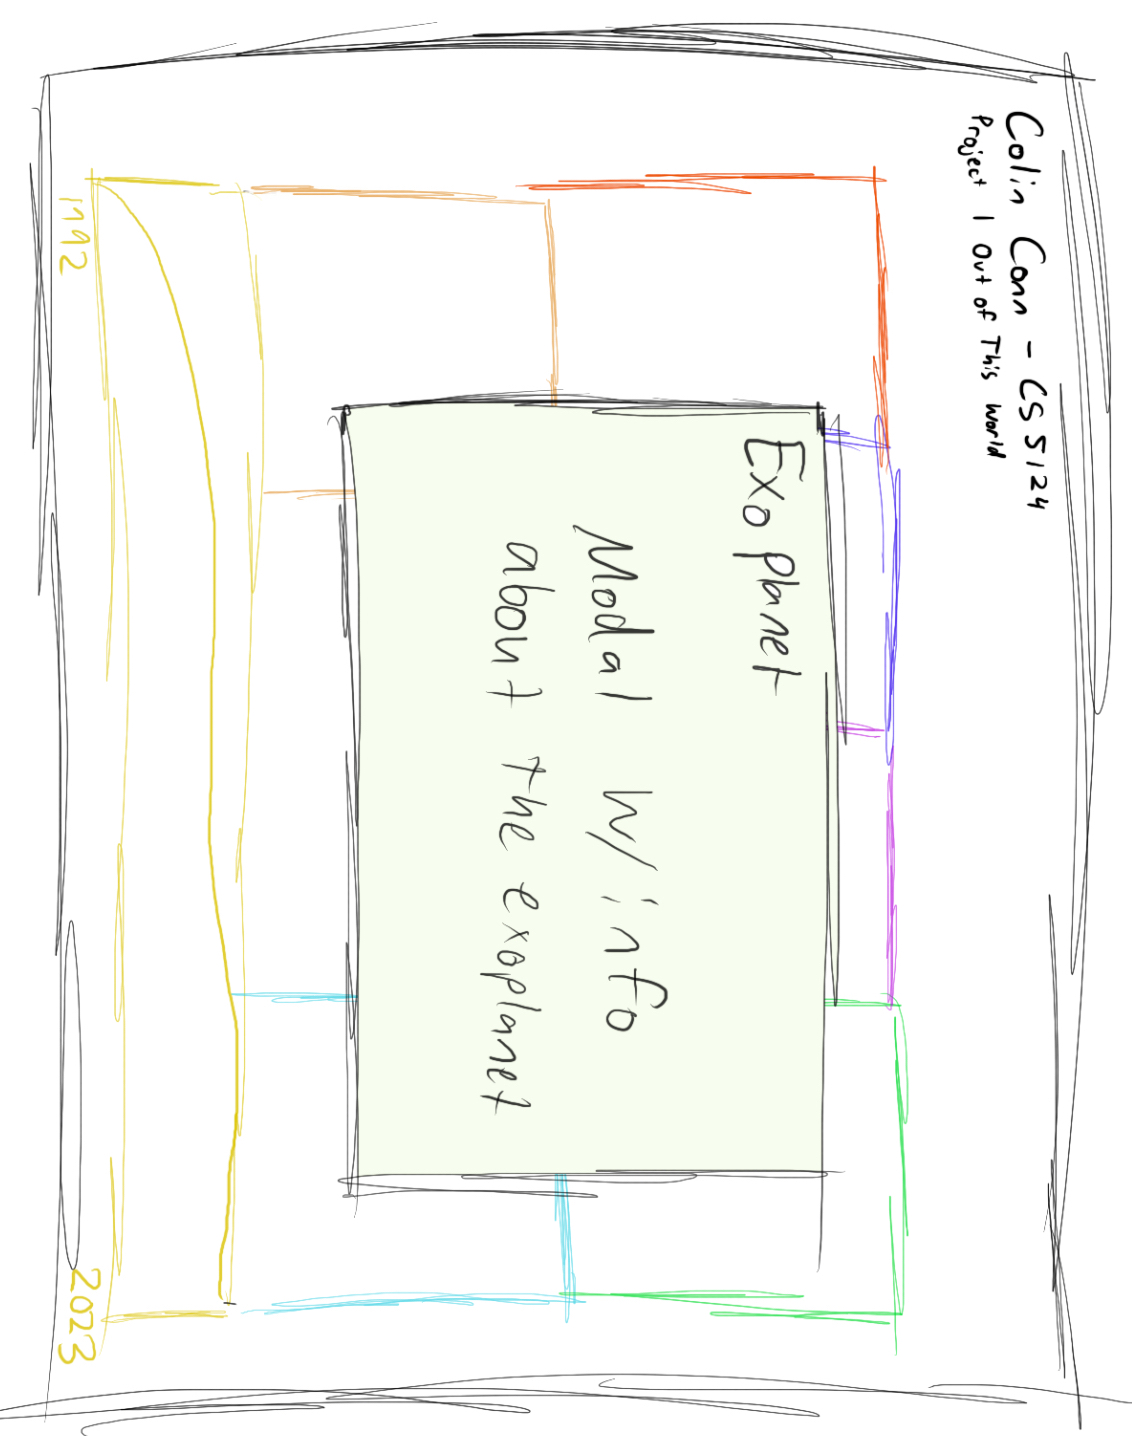 Colin Conn - CS 5124
Project 1 Out of This World
Exoplanet
Modal w/ info
about the exoplanet
1992
2023